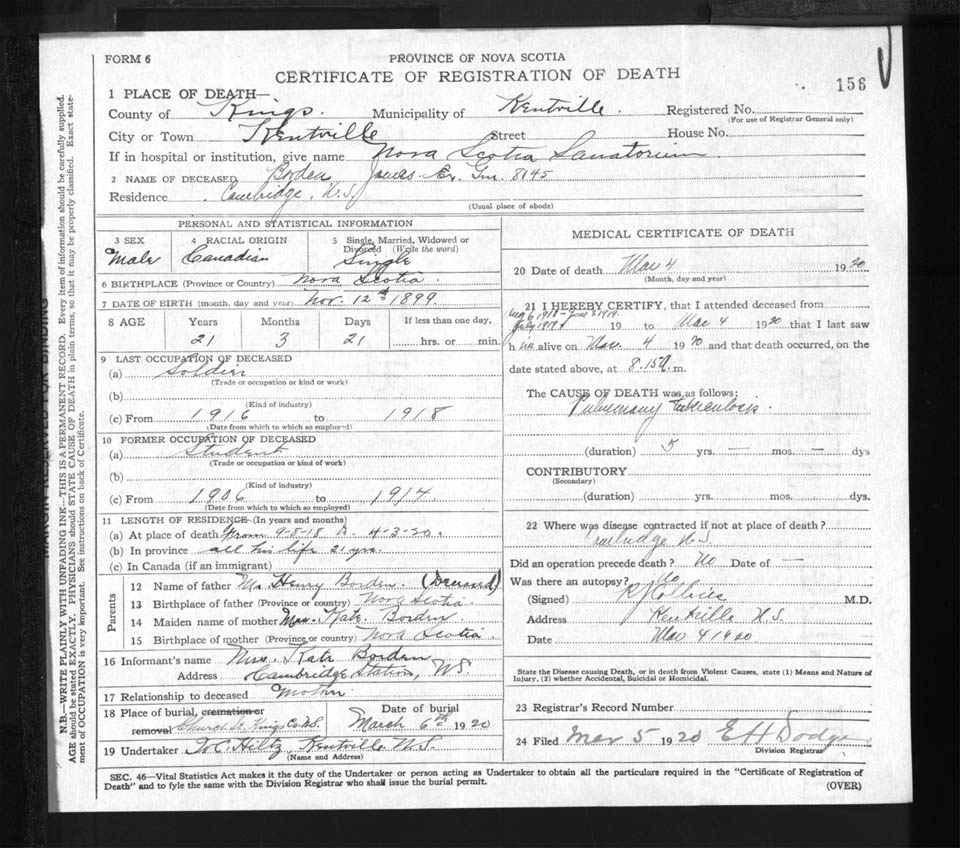 FORM 6
PROVINCE OF NOVA SCOTIA
CERTIFICATE OF REGISTRATION OF DEATH
156
1 PLACE OF DEATH—
County of Kings. Municipality of Kentville. Registered No.
(For use of Registrar General only)
City or Town Kentville Street House No.
If in hospital or institution, give name Nova Scotia Sanatorium.
2 NAME OF DECEASED Borden James Ex. Gnr. 8145
Residence Cambridge, N.S.
(Usual place of abode)
PERSONAL AND STATISTICAL INFORMATION
3 SEX Male
4 RACIAL ORIGIN Canadian
5 Single, Married, Widowed or Divorced (Write the word) Single
6 BIRTHPLACE (Province or Country) Nova Scotia.
7 DATE OF BIRTH (month, day and year) Nov. 12th 1899.
8 AGE Years Months Days If less than one day,
21 3 21 hrs. or min.
9 LAST OCCUPATION OF DECEASED
(a) Soldier
(Trade or occupation or kind or work)
(b)
(Kind of industry)
(c) From 1916 to 1918
(Date from which to which so employed)
10 FORMER OCCUPATION OF DECEASED
(a) Student
(Trade or occupation or kind of work)
(b)
(Kind of industry)
(c) From 1906 to 1914.
(Date from which to which so employed)
11 LENGTH OF RESIDENCE (In years and months)
(a) At place of death From 9-8-18 to 4-3-20.
(b) In province all his life 21 yrs.
(c) In Canada (if an immigrant)
Parents
12 Name of father Henry Borden. (Deceased)
13 Birthplace of father (Province or country) Nova Scotia.
14 Maiden name of mother Mrs. Kate Borden
15 Birthplace of mother (Province or country) Nova Scotia.
16 Informant's name Mrs. Kate Borden
Address Cambridge Station, N.S.
17 Relationship to deceased Mother
18 Place of burial, cremation or removal Church St. Kings Co. N.S.
Date of burial March 6th 1920
19 Undertaker W.C. Hiltz, Kentville N.S.
(Name and Address)
MEDICAL CERTIFICATE OF DEATH
20 Date of death Mar 4 1920
(Month, day and year)
21 I HEREBY CERTIFY, that I attended deceased from
Aug 6 1918 - June 3 1919.
July 1919 19 to Mar 4 1920 that I last saw
h im alive on Mar. 4 1920 and that death occurred, on the
date stated above, at 8.15 m.
The CAUSE OF DEATH was as follows:
Pulmonary Tuberculosis.
(duration) 5 yrs. — mos. — dys
CONTRIBUTORY
(Secondary)
(duration) yrs. mos. dys.
22 Where was disease contracted if not at place of death?
Cambridge N S
Did an operation precede death? No Date of —
Was there an autopsy? No
(Signed) M.D.
Address Kentville N.S.
Date Mar 4 1920
State the Disease causing Death, or in death from Violent Causes, state (1) Means and Nature of
Injury, (2) whether Accidental, Suicidal or Homicidal.
23 Registrar's Record Number
24 Filed Mar 5 1920 E H Dodge
Division Registrar
SEC. 46—Vital Statistics Act makes it the duty of the Undertaker or person acting as Undertaker to obtain all the particulars required in the "Certificate of Registration of
Death" and to fyle the same with the Division Registrar who shall issue the burial permit.
(OVER)
MARGIN RESERVED FOR BINDING
N.B.—WRITE PLAINLY WITH UNFADING INK—THIS IS A PERMANENT RECORD. Every item of information should be carefully supplied.
AGE should be stated EXACTLY. PHYSICIANS should STATE CAUSE OF DEATH in plain terms, so that it may be properly classified. Exact state-
ment of OCCUPATION is very important. See instructions on back of Certificate.